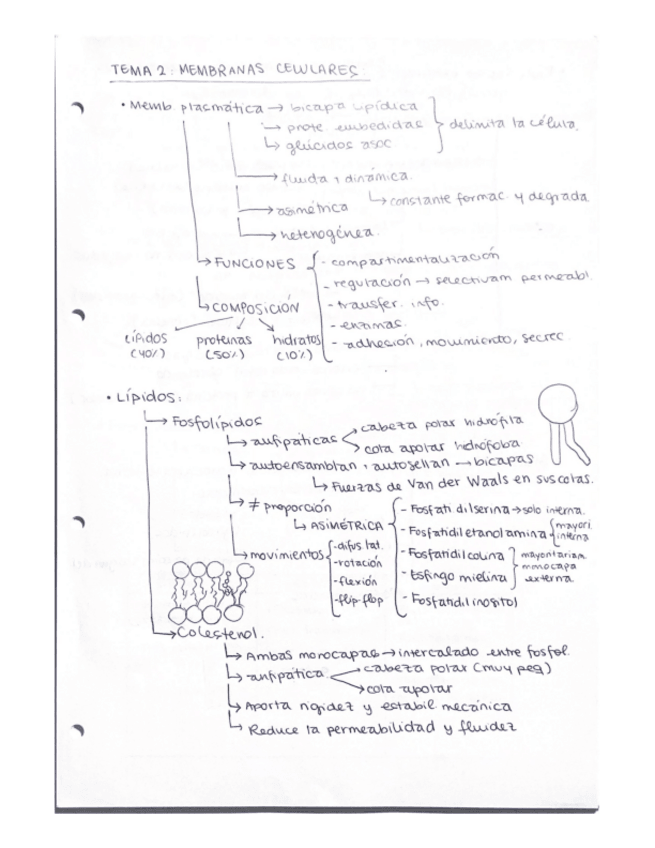 TEMA 2: MEMBRANAS CELULARES.
• Memb. plasmática → bicapa lipídica
↳ prote. embedidas } delimita la célula.
↳ glúcidos asoc.
→ fluida y dinámica.
→ asimétrica ↳ constante formac. y degrada.
→ heterogénea.
→ FUNCIONES { - compartimentalización
- regulación → selectivam. permeabl.
↳ COMPOSICIÓN - transfer. info.
- enzimas.
lípidos (40%) proteínas (50%) hidratos (10%)
- adhesión, movimiento, secrec.
• Lípidos:
→ Fosfolípidos
↳ anfipáticas < cabeza polar hidrófila
cola apolar hidrófoba
→ autoensamblan y autosellan → bicapas
↳ Fuerzas de Van der Waals en sus colas.
→ ≠ proporción
↳ ASIMÉTRICA { - Fosfatidilserina → solo interna.
- Fosfatidiletanolamina { mayori. interna
- Fosfatidilcolina
- Esfingomielina } mayoritariam. monocapa externa
- Fosfatidilinositol
→ movimientos { - difus lat.
- rotación
- flexión
- flip-flop
→ Colesterol.
↳ Ambas monocapas → intercalado entre fosfol.
↳ anfipática → cabeza polar (muy peq)
→ cola apolar
↳ Aporta rigidez y estabil. mecánica
↳ Reduce la permeabilidad y fluidez